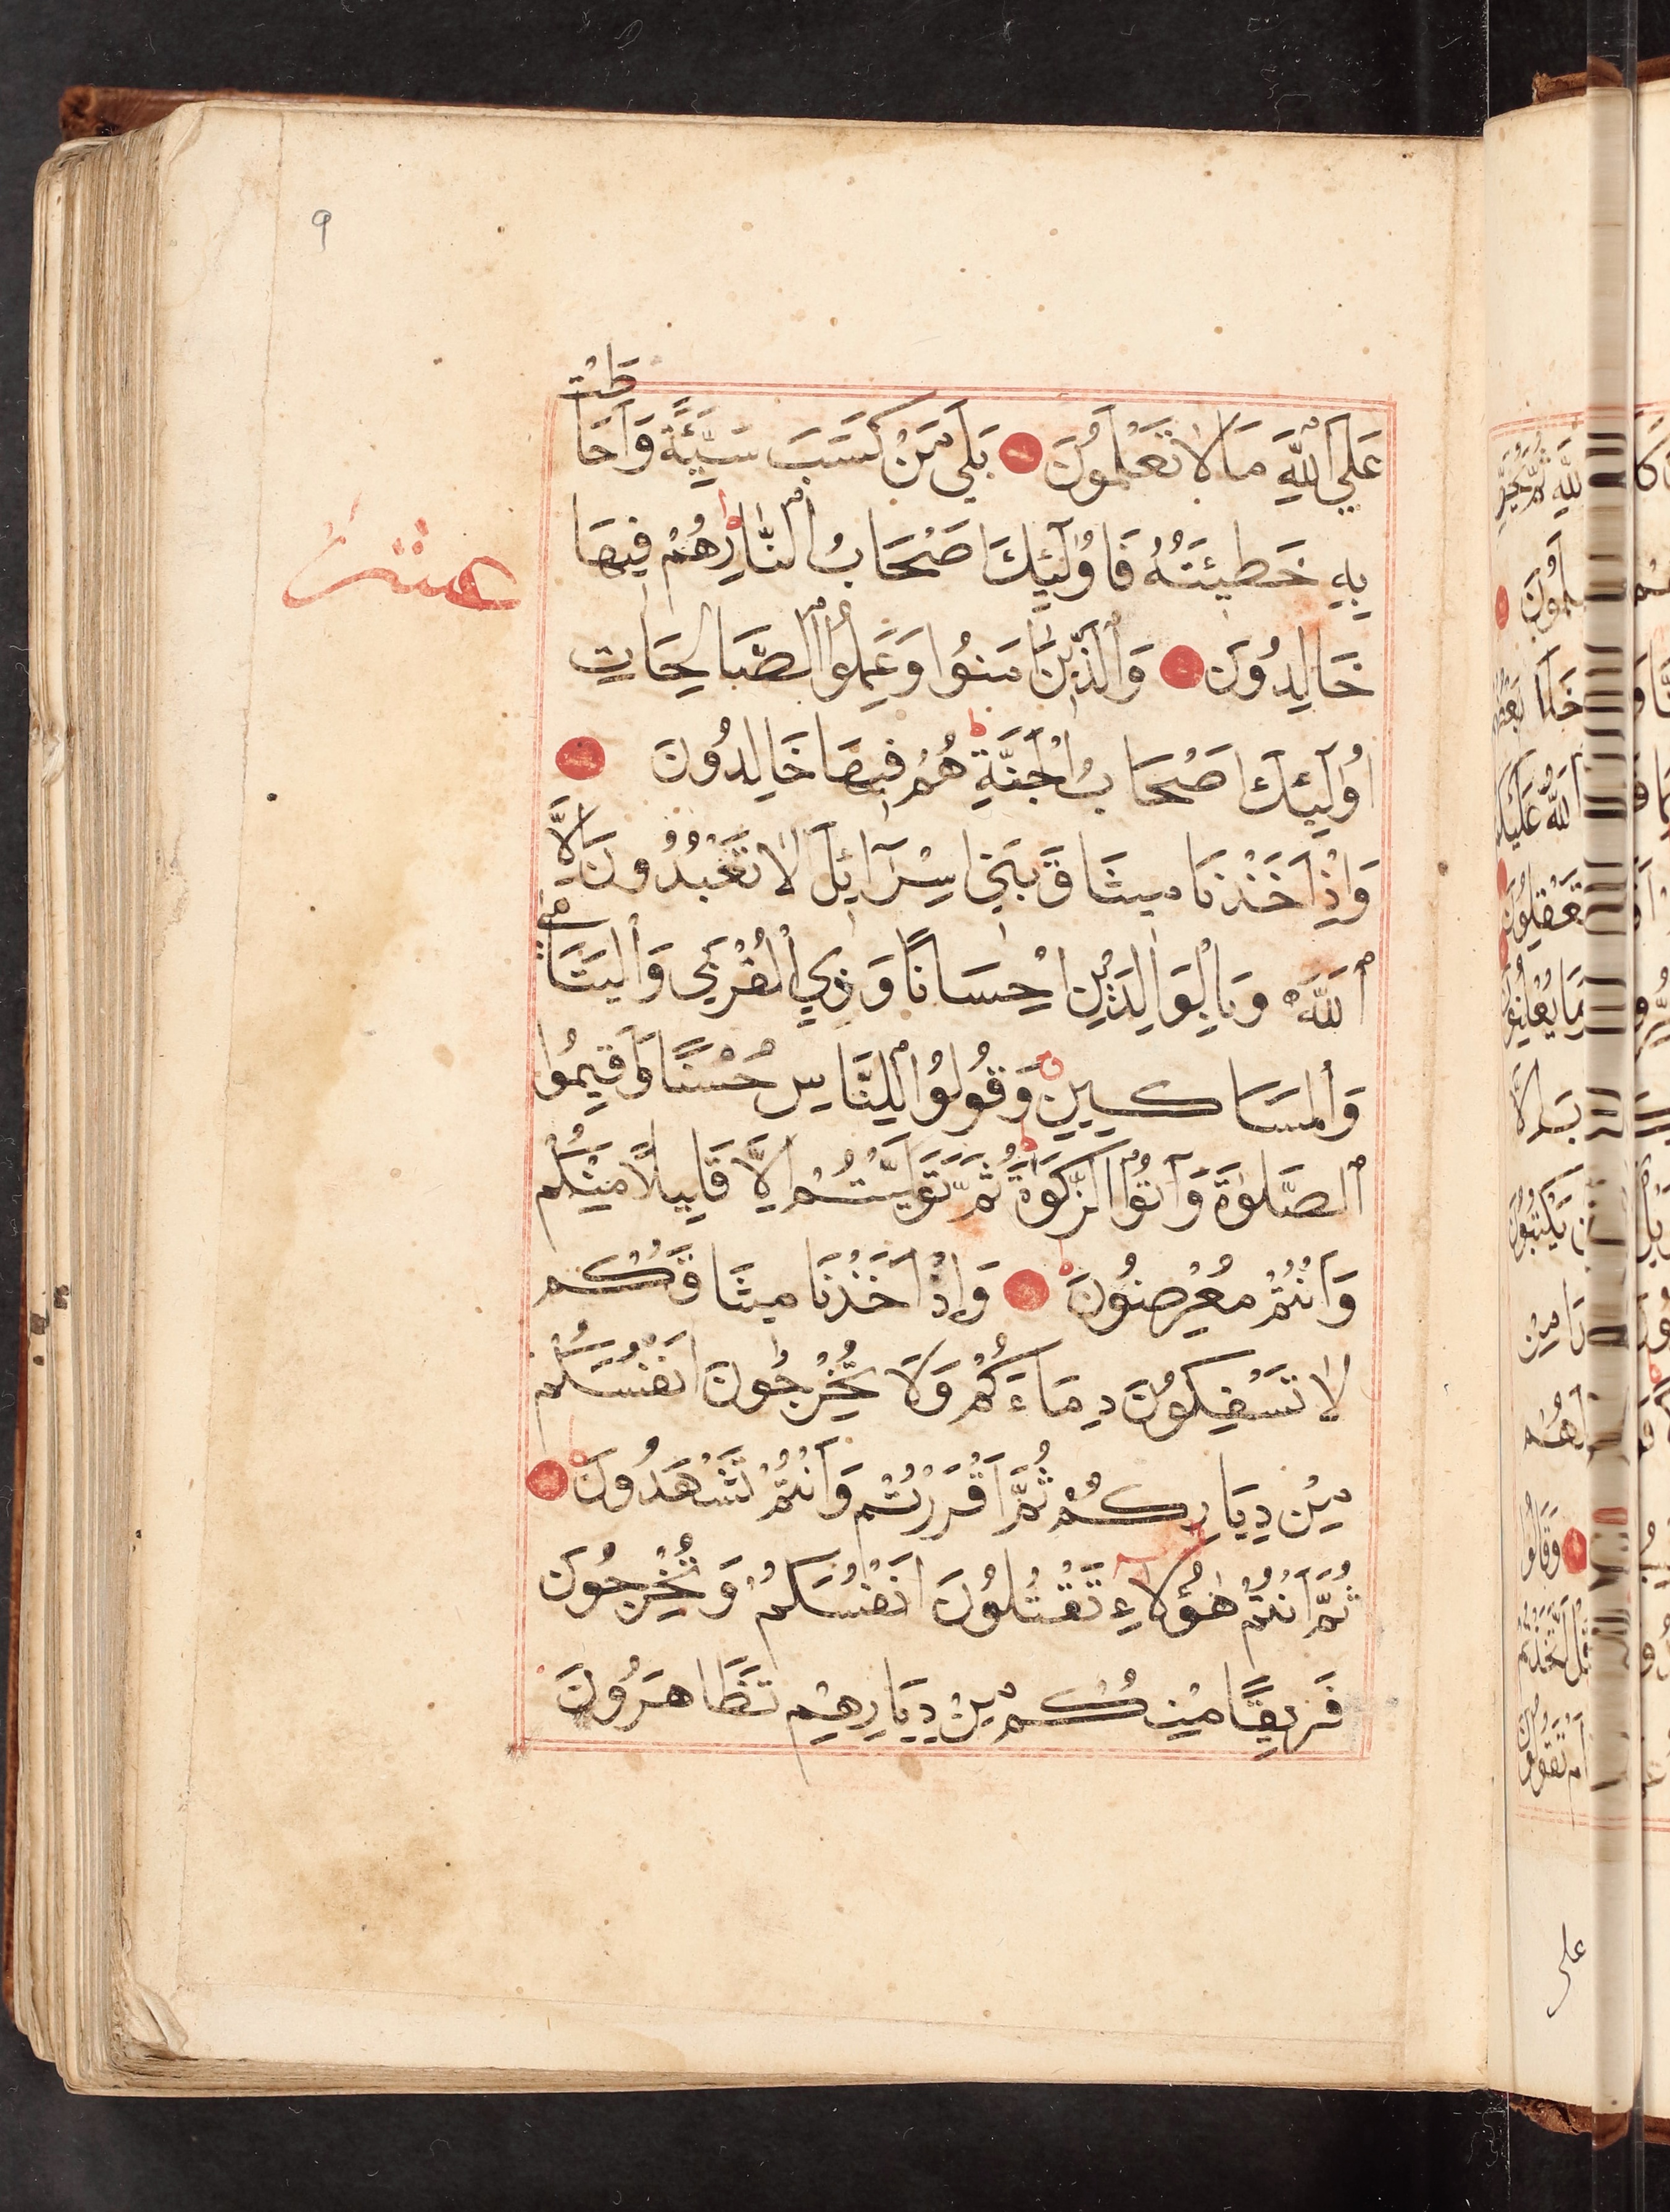 9
عَلَى ٱللَّهِ مَا لَا تَعْلَمُونَ بَلَى مَنْ كَسَبَ سَيِّئَةً وَأَحَاطَتْ
بِهِ خَطِيئَتُهُ فَأُولَٰئِكَ أَصْحَابُ ٱلنَّارِ هُمْ فِيهَا
عشر
خَالِدُونَ وَٱلَّذِينَ آمَنُوا وَعَمِلُوا ٱلصَّالِحَاتِ
أُولَٰئِكَ أَصْحَابُ ٱلْجَنَّةِ هُمْ فِيهَا خَالِدُونَ
وَإِذْ أَخَذْنَا مِيثَاقَ بَنِي إِسْرَآئِلَ لَا تَعْبُدُونَ إِلَّا
ٱللَّهَ وَبِالْوَالِدَيْنِ إِحْسَانًا وَذِي ٱلْقُرْبَى وَٱلْيَتَامَى
وَٱلْمَسَاكِينِ وَقُولُوا لِلنَّاسِ حُسْنًا وَأَقِيمُوا
ٱلصَّلَوٰةَ وَآتُوا ٱلزَّكَوٰةَ ثُمَّ تَوَلَّيْتُمْ إِلَّا قَلِيلًا مِنْكُمْ
وَأَنْتُمْ مُعْرِضُونَ وَإِذْ أَخَذْنَا مِيثَاقَكُمْ
لَا تَسْفِكُونَ دِمَاءَكُمْ وَلَا تُخْرِجُونَ أَنْفُسَكُمْ
مِنْ دِيَارِكُمْ ثُمَّ أَقْرَرْتُمْ وَأَنْتُمْ تَشْهَدُونَ
ثُمَّ أَنْتُمْ هَٰؤُلَاءِ تَقْتُلُونَ أَنْفُسَكُمْ وَتُخْرِجُونَ
فَرِيقًا مِنْكُمْ مِنْ دِيَارِهِمْ تَظَاهَرُونَ
على